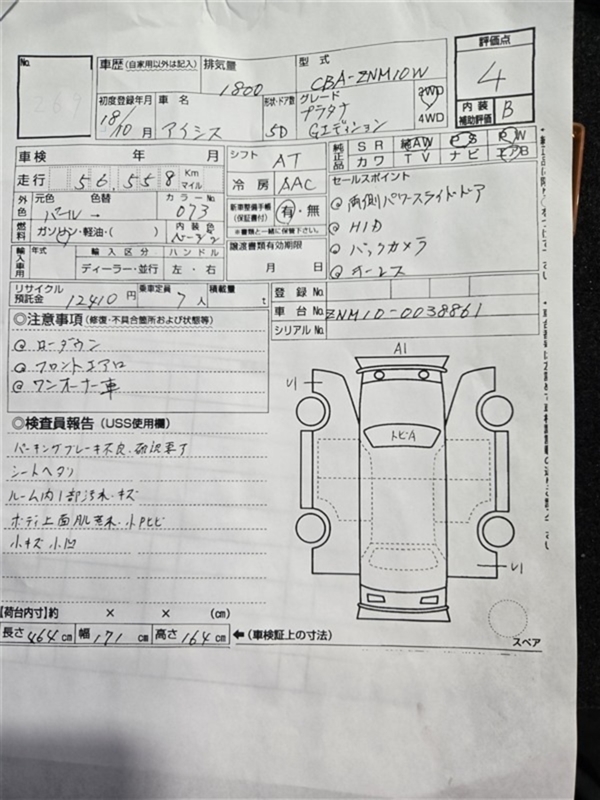 No.
車歴 (自家用以外は記入)
排気量 1800
型式 CBA-ZNM10W
評価点 4
初度登録年月 18/10月
車名 アイシス
形状・ドア数 5D
グレード プラタナ Gエディション
2WD 4WD
内装補助評価 B
車検 年 月
シフト AT
純正品 SR 純AW PS PW
カワ TV ナビ エアB
走行 56,558 Km マイル
冷房 AAC
セールスポイント
外色 元色 色替 カラーNo.
パール→ 073
新車整備手帳 (保証書付) 有・無
※書類と一緒に保管下さい。
両側パワースライドドア
燃料 ガソリン・軽油・( ) 内装色 ベージュ
HID
輸入車用 年式 輸入区分 ハンドル
ディーラー・並行 左・右
譲渡書類有効期限
月 日
バックカメラ
キーレス
リサイクル預託金 12410円
乗車定員 7人
積載量 t
登録No.
車台No. ZNM10-0038861
シリアルNo.
◎注意事項 (修復・不具合箇所および状態等)
ローダウン
フロントエアロ
ワンオーナー車
A1
トビA
◎検査員報告 (USS使用欄)
パーキングブレーキ不良.確認要す
シートヘタリ
ルーム内1部汚れ.キズ
ボディ上面肌荒れ.小トビヒビ
小キズ小凹
【荷台内寸】約 × × (cm)
長さ 464cm 幅 171cm 高さ 164cm ←(車検証上の寸法)
スペア